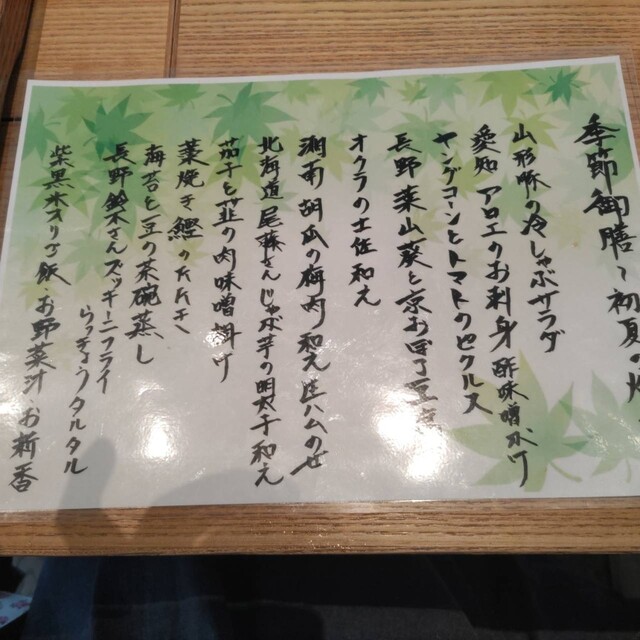 季節御膳〜初夏の
山形豚の冷しゃぶサラダ
愛知 アロエのお刺身 酢味噌掛け
ヤングコーンとトマトのピクルス
長野 葉山葵と京お
オクラの土佐和え
湘南胡瓜の梅肉和え 生ハムのせ
北海道 じゃが芋の明太子和え
茄子と韮の肉味噌掛け
藁焼き鰹のたたき
海苔と豆の茶碗蒸し
長野 鈴木さんズッキーニフライ
らっきょうタルタル
紫黒米入りご飯・お野菜汁・お新香